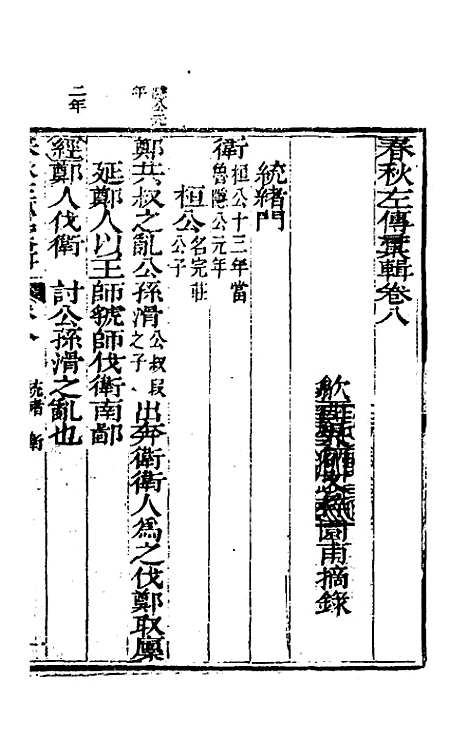 春秋左傳彙輯卷八
歙 園甫摘錄
統緒門
衛桓公十三年當魯隱公元年
桓公名完莊公子
隱公元年
鄭共叔之亂公孫滑公叔段之子出奔衛衛人為之伐鄭取廩
延鄭人以王師虢師伐衛南鄙
二年
經鄭人伐衛 討公孫滑之亂也
春秋左傳彙輯 卷八 統緒 衛